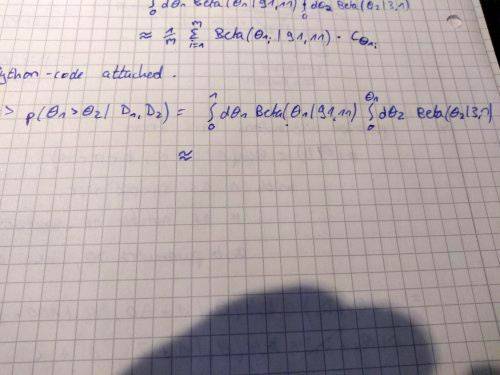 ∫₀ dθ₁ Beta(θ₁|91,11) ∫₀ dθ₂ Beta(θ₂|3,1)
≈ 1/m ∑ᵢ₌₁ᵐ Beta(θ₁ᵢ|91,11) · Cθ₁ᵢ
ython-code attached.
> p(θ₁>θ₂| D₁,D₂) = ∫₀¹ dθ₁ Beta(θ₁|91,11) ∫₀^θ₁ dθ₂ Beta(θ₂|3,1)
≈